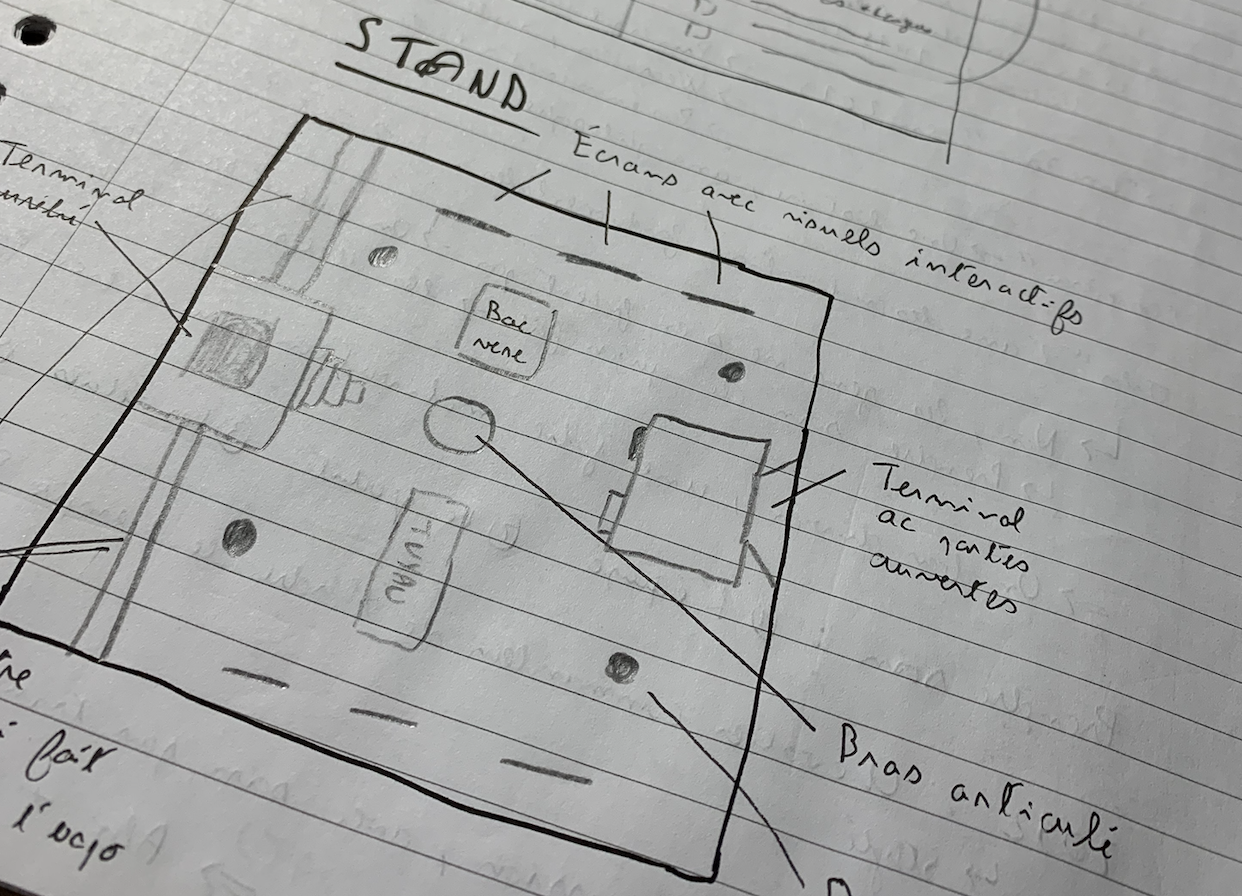 STAND
Écrans avec visuels interactifs
Terminal
Bac
verre
TUYAU
Terminal
ac portes
ouvertes
Bras articulé
fait
l'expo